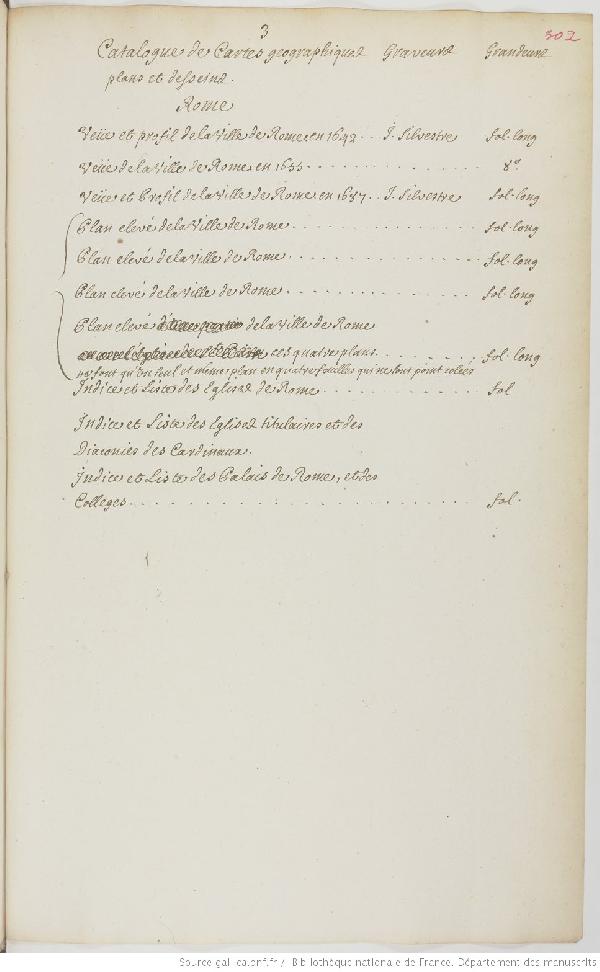 3
302
Catalogue de Cartes geographiques Graveurs Grandeurs
plans et desseins.
Rome
Veüe et profil de la Ville de Rome en 1642 . . J. Silvestre fol. long
Veüe de la Ville de Rome en 1655 . . . . . . . . . . . . 8º
Veüe et Profil de la Ville de Rome en 1687 . . J. Silvestre fol. long
Plan elevé de la Ville de Rome . . . . . . . . . . . . fol. long
Plan elevé de la Ville de Rome . . . . . . . . . . . . fol. long
Plan elevé de la Ville de Rome . . . . . . . . . . . . fol. long
Plan elevé de la Ville de Rome
ces quatre plans . . . . . . . . fol. long
ne font qu'un seul et même plan en quatre feuilles qui ne sont point colées
Indice et Liste des Eglises de Rome . . . . . . . . . . fol
Indice et Liste des Eglises titulaires et des
Diaconies des Cardinaux.
Indice et Liste des Palais de Rome, et des
Colleges . . . . . . . . . . . . . . . . . . . . fol.
Source gallica.bnf.fr / Bibliothèque nationale de France. Département des manuscrits